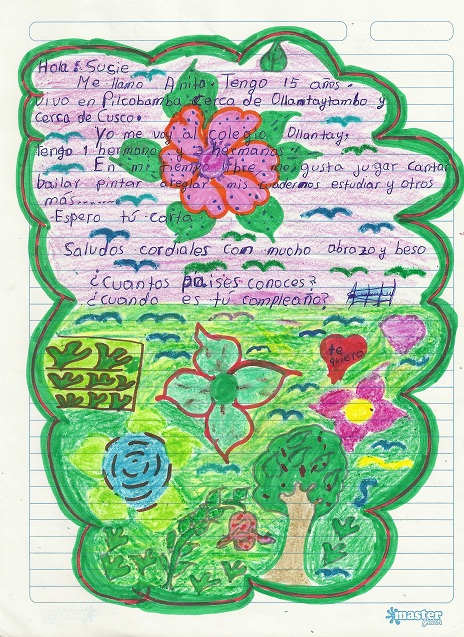 Hola: Sucie
Me llamo Anita. Tengo 15 años.
vivo en Pilcobamba cerca de Ollantaytambo y
cerca de Cusco.
Yo me voy al colegio Ollantay,
tengo 1 hermano y 3 hermanas.
En mi tiempo libre me gusta jugar cantar
bailar pintar areglar mis cuadernos estudiar y otros
más.......
Espero tú carta
Saludos cordiales con mucho abrazo y beso
¿Cuantos paises conoces?
¿cuando es tú compleaño?
te
quiero
master